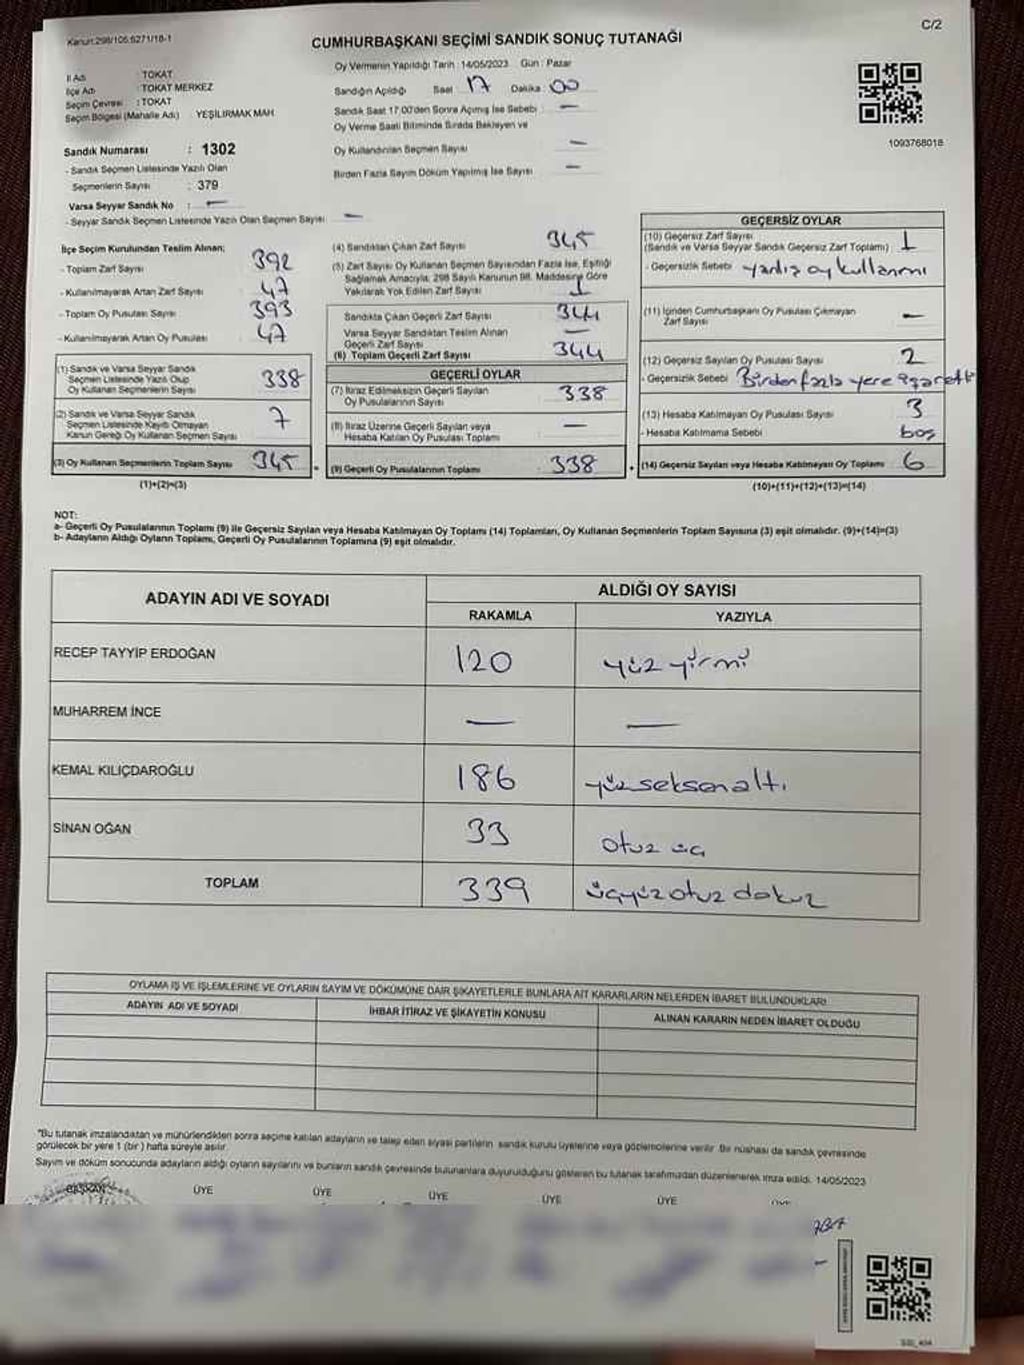 Kanun:298/105;6271/18-1
C/2
CUMHURBAŞKANI SEÇİMİ SANDIK SONUÇ TUTANAĞI
İl Adı : TOKAT
İlçe Adı : TOKAT MERKEZ
Seçim Çevresi : TOKAT
Seçim Bölgesi (Mahalle Adı) : YEŞİLIRMAK MAH
Sandık Numarası : 1302
- Sandık Seçmen Listesinde Yazılı Olan
Seçmenlerin Sayısı : 379
Varsa Seyyar Sandık No : —
- Seyyar Sandık Seçmen Listesinde Yazılı Olan Seçmen Sayısı —
Oy Vermenin Yapıldığı Tarih : 14/05/2023 Gün : Pazar
Sandığın Açıldığı Saat : 17 Dakika : 00
Sandık Saat 17.00'den Sonra Açılmış İse Sebebi : —
Oy Verme Saati Bitiminde Sırada Bekleyen ve
Oy Kullandırılan Seçmen Sayısı —
Birden Fazla Sayım Döküm Yapılmış İse Sayısı —
1093768018
İlçe Seçim Kurulundan Teslim Alınan;
- Toplam Zarf Sayısı 392
- Kullanılmayarak Artan Zarf Sayısı 47
- Toplam Oy Pusulası Sayısı 393
- Kullanılmayarak Artan Oy Pusulası 47
(1) Sandık ve Varsa Seyyar Sandık
Seçmen Listesinde Yazılı Olup
Oy Kullanan Seçmenlerin Sayısı 338
(2) Sandık ve Varsa Seyyar Sandık
Seçmen Listesinde Kayıtlı Olmayan
Kanun Gereği Oy Kullanan Seçmen Sayısı 7
(3) Oy Kullanan Seçmenlerin Toplam Sayısı 345
(1)+(2)=(3)
(4) Sandıktan Çıkan Zarf Sayısı 345
(5) Zarf Sayısı Oy Kullanan Seçmen Sayısından Fazla İse, Eşitliği
Sağlamak Amacıyla, 298 Sayılı Kanunun 98. Maddesine Göre
Yakılarak Yok Edilen Zarf Sayısı 1
Sandıkta Çıkan Geçerli Zarf Sayısı 344
Varsa Seyyar Sandıktan Teslim Alınan
Geçerli Zarf Sayısı —
(6) Toplam Geçerli Zarf Sayısı 344
GEÇERLİ OYLAR
(7) İtiraz Edilmeksizin Geçerli Sayılan
Oy Pusulalarının Sayısı 338
(8) İtiraz Üzerine Geçerli Sayılan veya
Hesaba Katılan Oy Pusulası Toplamı —
(9) Geçerli Oy Pusulalarının Toplamı 338
GEÇERSİZ OYLAR
(10) Geçersiz Zarf Sayısı
(Sandık ve Varsa Seyyar Sandık Geçersiz Zarf Toplamı) 1
- Geçersizlik Sebebi yanlış oy kullanımı
(11) İçinden Cumhurbaşkanı Oy Pusulası Çıkmayan
Zarf Sayısı —
(12) Geçersiz Sayılan Oy Pusulası Sayısı 2
- Geçersizlik Sebebi Birden fazla yere işaret
(13) Hesaba Katılmayan Oy Pusulası Sayısı 3
- Hesaba Katılmama Sebebi boş
(14) Geçersiz Sayılan veya Hesaba Katılmayan Oy Toplamı 6
(10)+(11)+(12)+(13)=(14)
NOT:
a- Geçerli Oy Pusulalarının Toplamı (9) ile Geçersiz Sayılan veya Hesaba Katılmayan Oy Toplamı (14) Toplamları, Oy Kullanan Seçmenlerin Toplam Sayısına (3) eşit olmalıdır. (9)+(14)=(3)
b- Adayların Aldığı Oyların Toplamı, Geçerli Oy Pusulalarının Toplamına (9) eşit olmalıdır.
ADAYIN ADI VE SOYADI
ALDIĞI OY SAYISI
RAKAMLA YAZIYLA
RECEP TAYYİP ERDOĞAN 120 yüz yirmi
MUHARREM İNCE — —
KEMAL KILIÇDAROĞLU 186 yüzseksenaltı
SİNAN OĞAN 33 otuz üç
TOPLAM 339 üçyüzotuz dokuz
OYLAMA İŞ VE İŞLEMLERİNE VE OYLARIN SAYIM VE DÖKÜMÜNE DAİR ŞİKAYETLERLE BUNLARA AİT KARARLARIN NELERDEN İBARET BULUNDUKLARI
ADAYIN ADI VE SOYADI İHBAR İTİRAZ VE ŞİKAYETİN KONUSU ALINAN KARARIN NEDEN İBARET OLDUĞU
"Bu tutanak imzalandıktan ve mühürlendikten sonra seçime katılan adayların ve talep eden siyasi partilerin sandık kurulu üyelerine veya gözlemcilerine verilir. Bir nüshası da sandık çevresinde
görülecek bir yere 1 (bir) hafta süreyle asılır.
Sayım ve döküm sonucunda adayların aldığı oyların sayılarını ve bunların sandık çevresinde bulunanlara duyurulduğunu gösteren bu tutanak tarafımızdan düzenlenerek imza edildi. 14/05/2023
BAŞKAN ÜYE ÜYE ÜYE ÜYE ÜYE